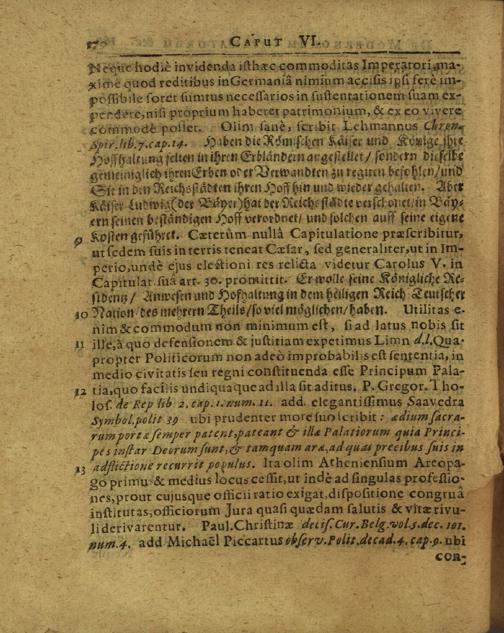 170 CAPUT VI.
Neque hodiè invidenda isthæc commoditas Imperatori, ma-
ximè quod reditibus in Germaniâ nimium accisis ipsi ferè im-
possibile foret sumtus necessarios in sustentationem suam ex-
pendere, nisi proprium haberet patrimonium, & ex eo vivere
commodè posset. Olim sanè, scribit Lehmannus Chron.
Spir. lib. 7. cap. 14. Haben die Römischen Käiser und Könige ihre
Hoffhaltung selten in ihren Erbländern angestellet/ sondern dieselbe
gemeiniglich ihren Erben oder Verwandten zu regiren befohlen/ und
Sie in den Reichsstädten ihren Hoff hin und wieder gehalten. Aber
Käiser Ludwig (der Bäyer) hat der Reichsstädte verschonet/ in Bäy-
ern seinen beständigen Hoff verordnet/ und solchen auff seine eigene
9 Kosten geführet. Cæterùm nullâ Capitulatione præscribitur,
ut sedem suis in terris teneat Cæsar, sed generaliter, ut in Im-
perio, unde ejus electioni res relicta videtur Carolus V. in
Capitulat. suâ art. 30. promittit. Er wolle seine Königliche Re-
sidentz/ Anwesen und Hofhaltung in dem heiligen Reich Teutscher
10 Nation/ des mehrern Theils/ so viel möglichen/ haben. Utilitas e-
nim & commodum non minimum est, si ad latus nobis sit
11 ille, à quo defensionem & justitiam expetimus Limn d. l. Qua-
propter Politicorum non adeò improbabilis est sententia, in
medio civitatis seu regni constituenda esse Principum Pala-
12 tia, quo facilis undiquaque ad illa sit aditus. P. Gregor. Tho-
los. de Rep lib. 2. cap. 1. num. 11. add. elegantissimus Saavedra
Symbol. polit 39 ubi prudenter more suo scribit: ædium sacra-
rum portæ semper patent, pateant & illæ Palatiorum quia Princi-
pes instar Deorum sunt, & tamquam aræ, ad quas precibus suis in
13 adflictione recurrit populus. Ita olim Atheniensium Areopa-
go primus & medius locus cessit, ut inde ad singulas professio-
nes, prout cujusque officii ratio exigat, dispositione congruâ
institutas, officiorum Jura quasi quædam salutis & vitæ rivu-
li derivarentur. Paul. Christinæ. decis. Cur. Belg. vol. 5. dec. 101.
num. 4. add Michaël Piccartus observ. Polit. decad. 4. cap. 9. ubi
con-